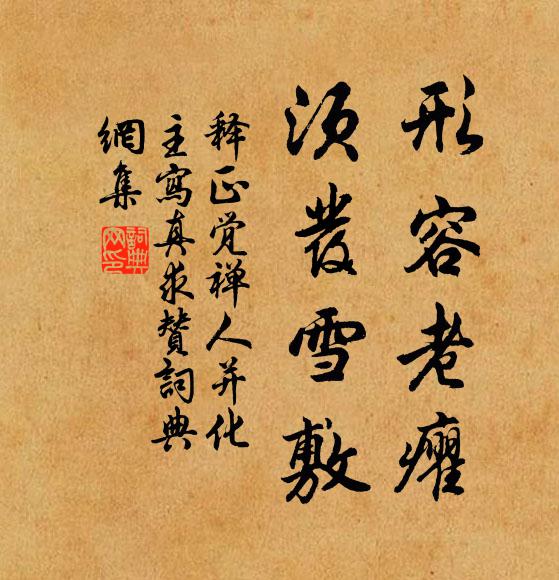 形容老癯
须发雪敷
释正觉禅人并化
主写真求赞词典
网集
词典
网印